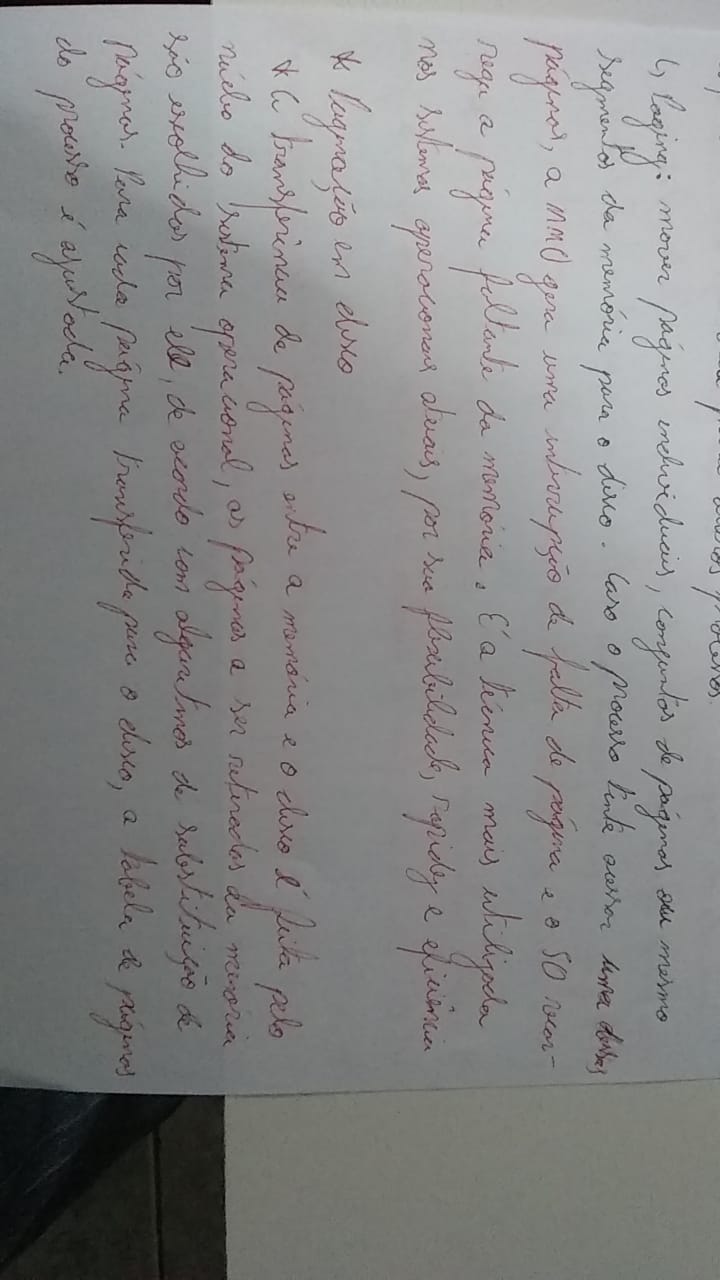 para outros processos.
↳ Paging: mover páginas individuais, conjuntos de páginas ou mesmo
segmentos da memória para o disco. Caso o processo tente acessar uma dessas
páginas, a MMU gera uma interrupção de falta de página e o SO recar-
rega a página faltante da memória. É a técnica mais utilizada
nos sistemas operacionais atuais, por sua flexibilidade, rapidez e eficiência
* Paginação em disco
* A transferência de páginas entre a memória e o disco é feita pelo
núcleo do sistema operacional, as páginas a ser retiradas da memória
são escolhidas por ele, de acordo com algoritmos de substituição de
páginas. Para cada página transferida para o disco, a tabela de páginas
do processo é ajustada.